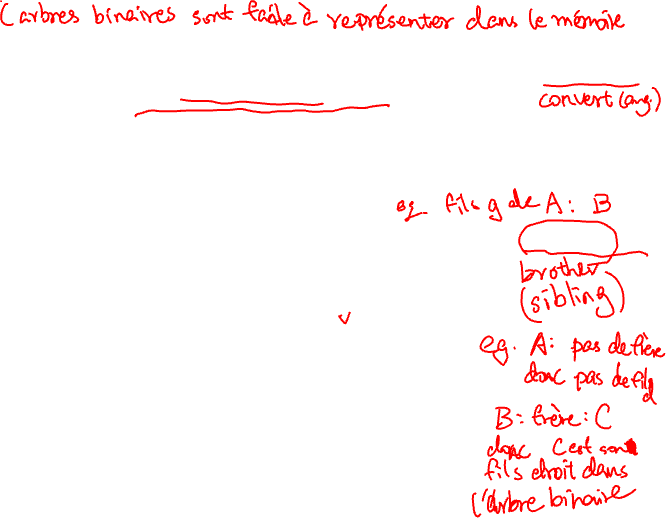 (arbres binaires sont facile à représenter dans le mémoire
convert (ang.)
eg. fils g de A : B
brother
(sibling)
eg. A : pas de frère
donc pas de fils d
B : frère : C
donc C est son
fils droit dans
l'arbre binaire